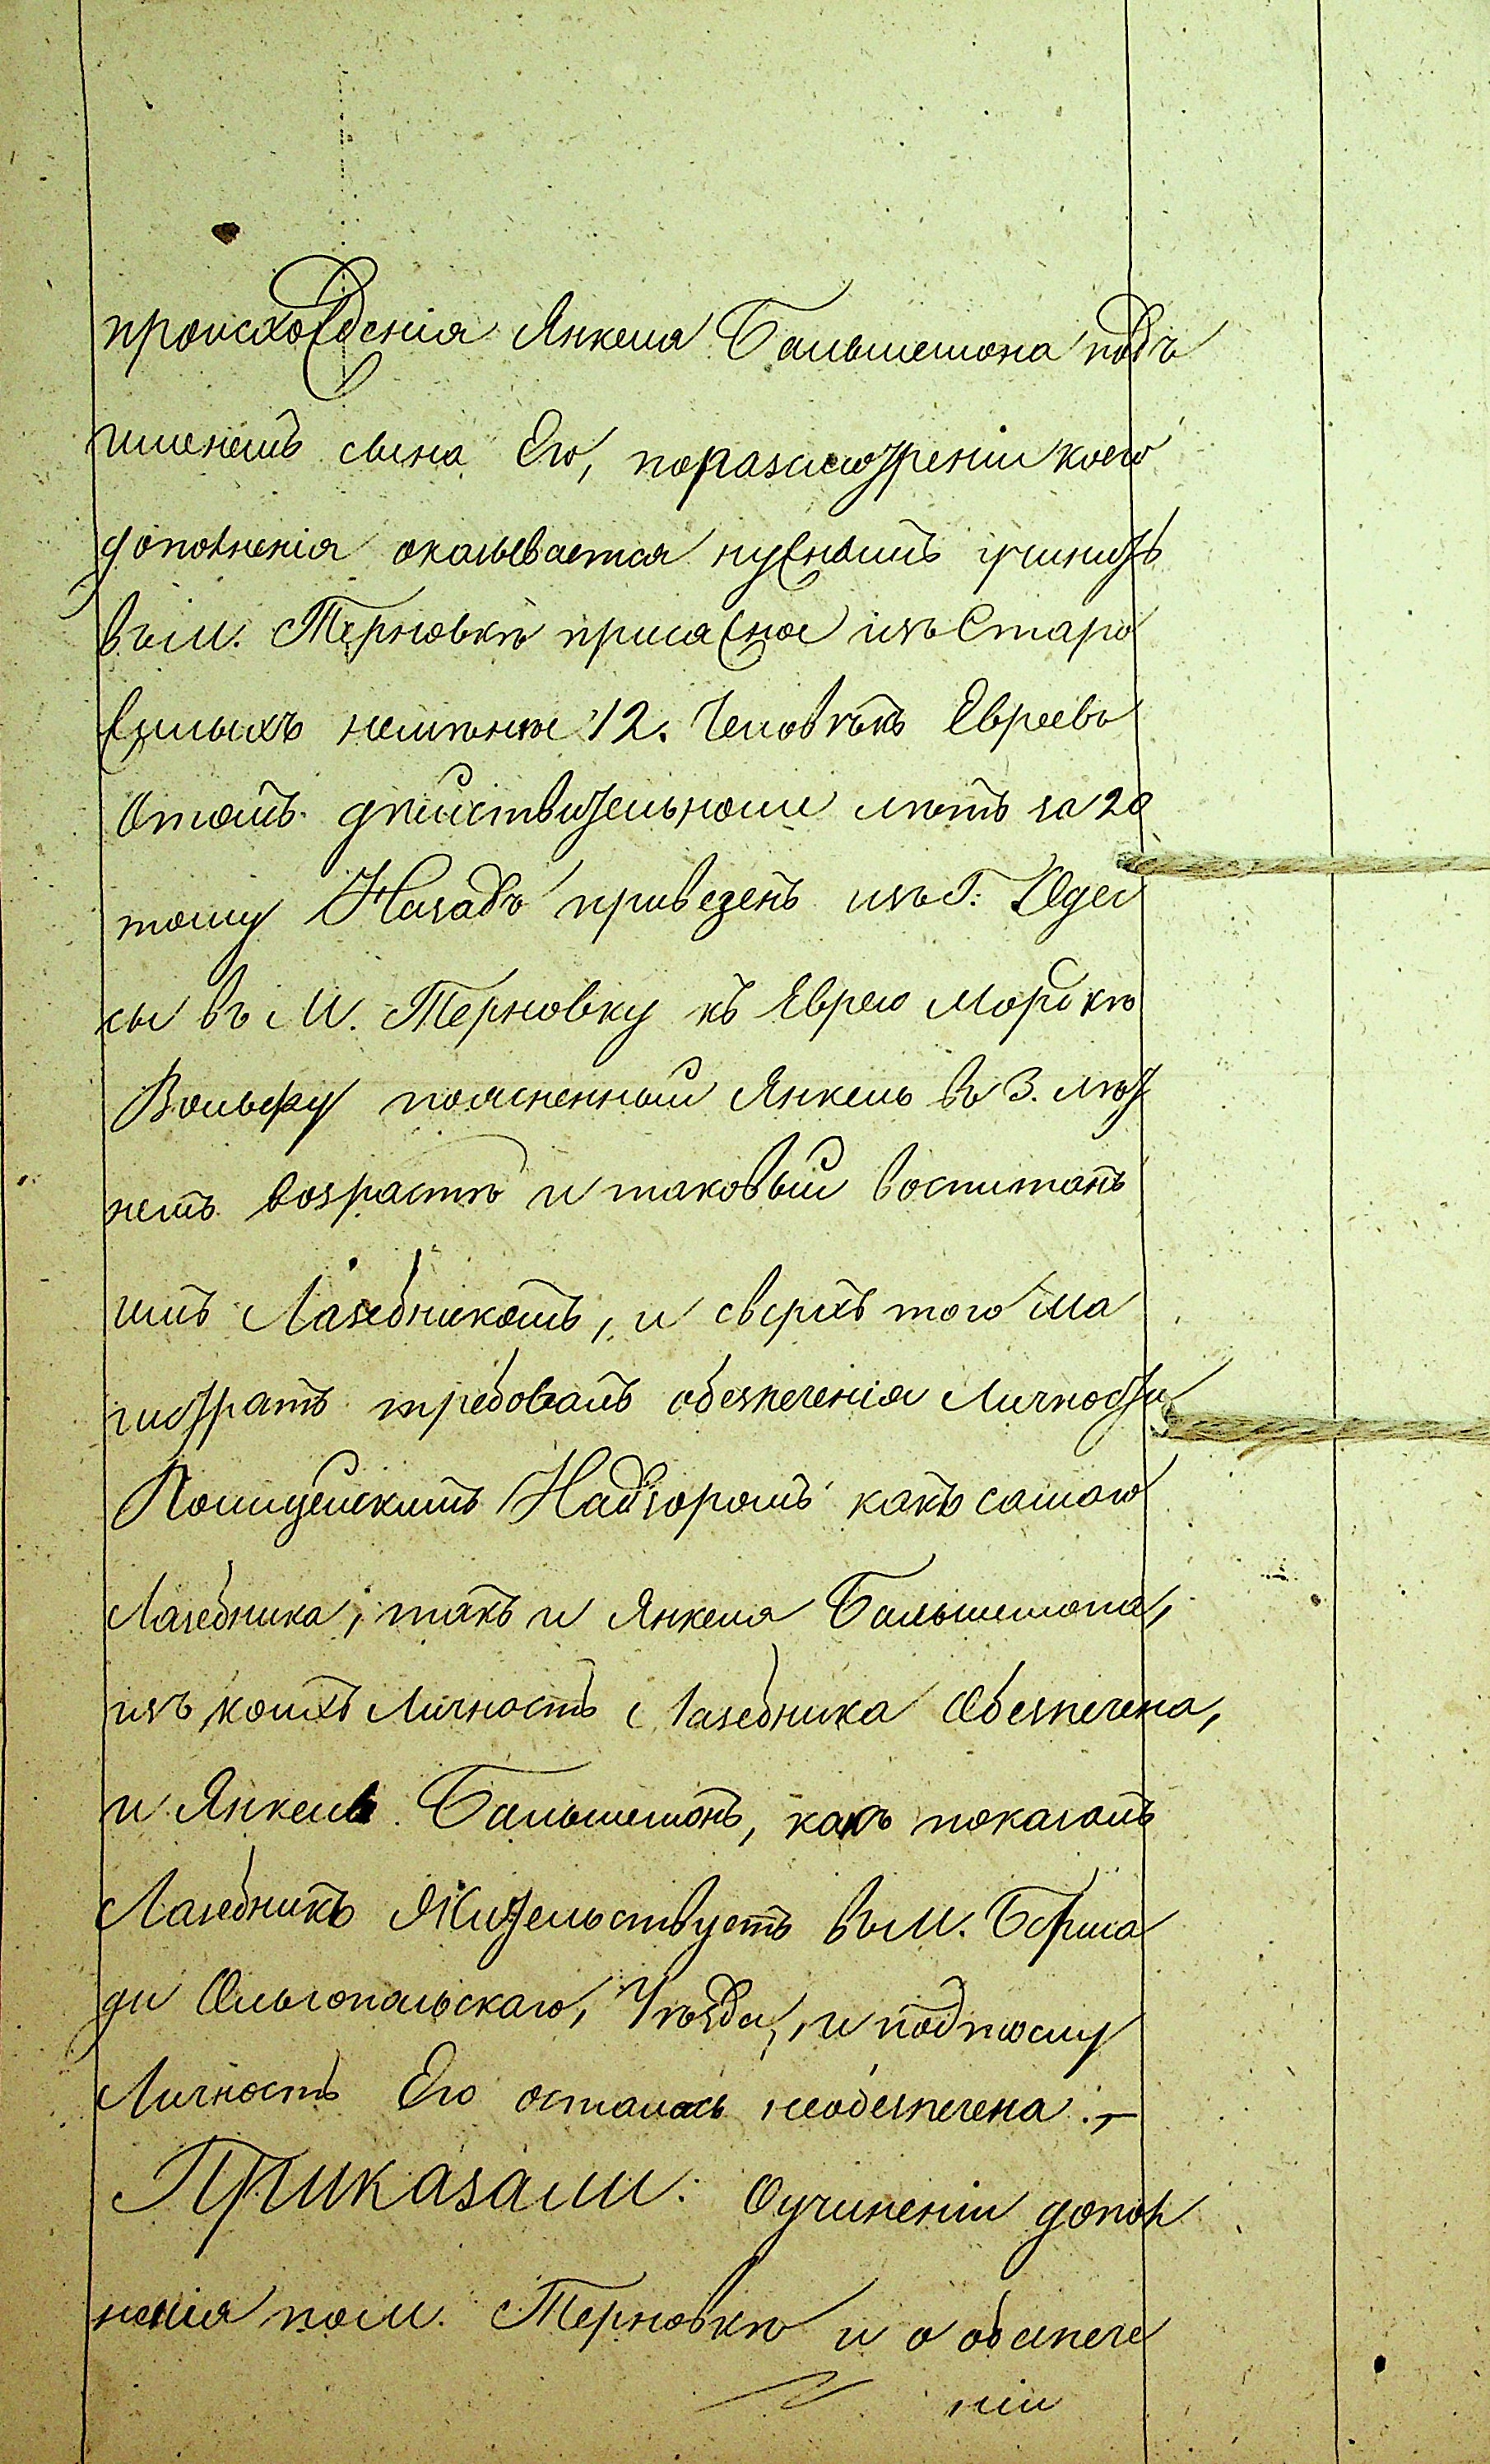 происхожденія Янкеля Бальшемона подъ
именемъ сына Его, поразсмотреніи коего
дополненія оказывается нужнымъ учинить
въ м. Терновкѣ присяжное изъ Старо
жилыхъ неменѣе 12. Человѣкъ Евреевъ
отомъ действительноли лѣтъ за 20
тому Назадъ приведенъ изъ Г. Одес
сы въ М. Терновку къ ЕвреюМорбкѣ
Вольфу поясненный Янкель въ 3. лѣт
немъ возрастѣ и таковый воспитанъ
имъ Лазебникомъ, и сверхъ того Ма
гистратъ требовалъ обезпеченія Личности
Полицейскимъ Надзоромъ какъ самаго
Лазебника, такъ и Янкеля Бальшемона,
изъ коихъ Личность Лазебника Обезпечена,
и Янкель Бальшемонъ, какъ показалъ
Лазебникъ Жительствуетъ въ м. Берша
ди Ольгопольскаго, Уѣзда, и подтому
Личность Его осталась необезпечена.,—
Приказали: Оучиненіи допол
ненія пом. Терновкѣ и о обезпече
ніи